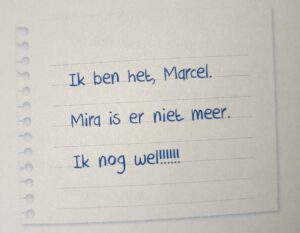 Ik ben het, Marcel.
Mira is er niet meer.
Ik nog wel!!!!!!